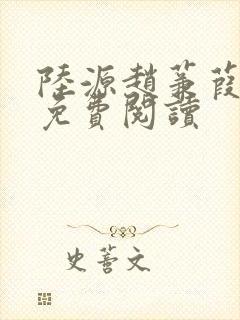 陸源趙蒹葭
免費閱讀
史蒼文